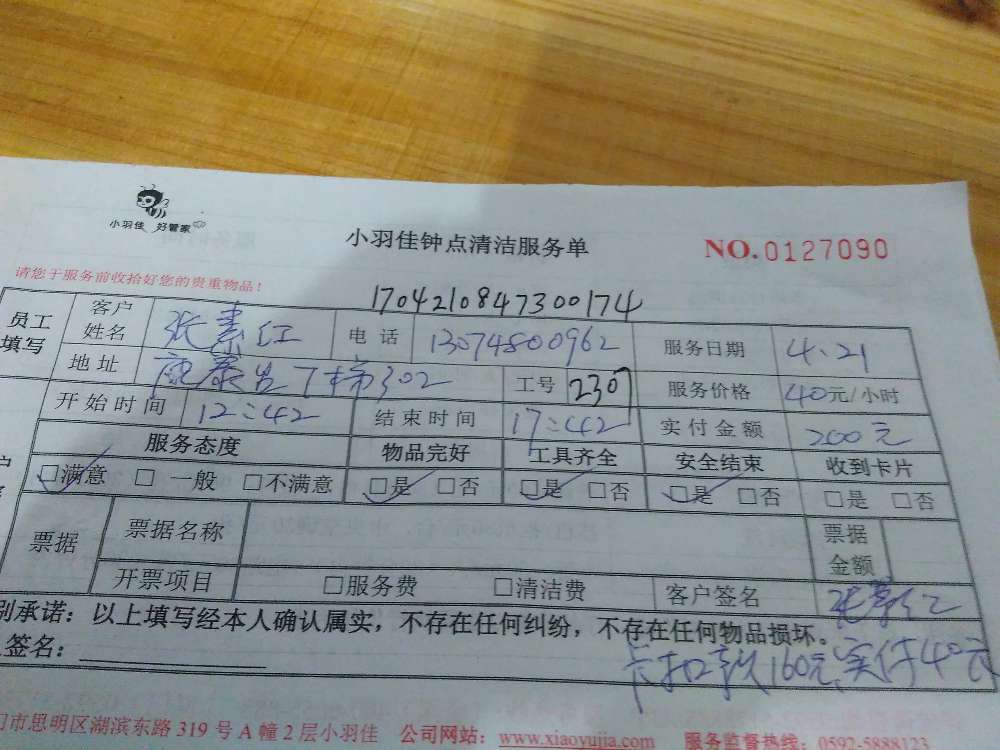 小羽佳 好管家
小羽佳钟点清洁服务单 NO.0127090
请您于服务前收拾好您的贵重物品！
1704210847300174
员工填写 客户姓名 张素红 电话 13074800962 服务日期 4.21
地址 302 工号 2307 服务价格 40元/小时
开始时间 12:42 结束时间 17:42 实付金额 200元
服务态度 物品完好 工具齐全 安全结束 收到卡片
☑满意 □一般 □不满意 ☑是 □否 ☑是 □否 ☑是 □否 □是 □否
票据 票据名称 票据金额
开票项目 □服务费 □清洁费 客户签名 张素红
别承诺：以上填写经本人确认属实，不存在任何纠纷，不存在任何物品损坏。
签名：
卡扣款160元,实付40元
门市思明区湖滨东路319号A幢2层小羽佳 公司网站：www.xiaoyujia.com 服务监督热线：0592-5888123